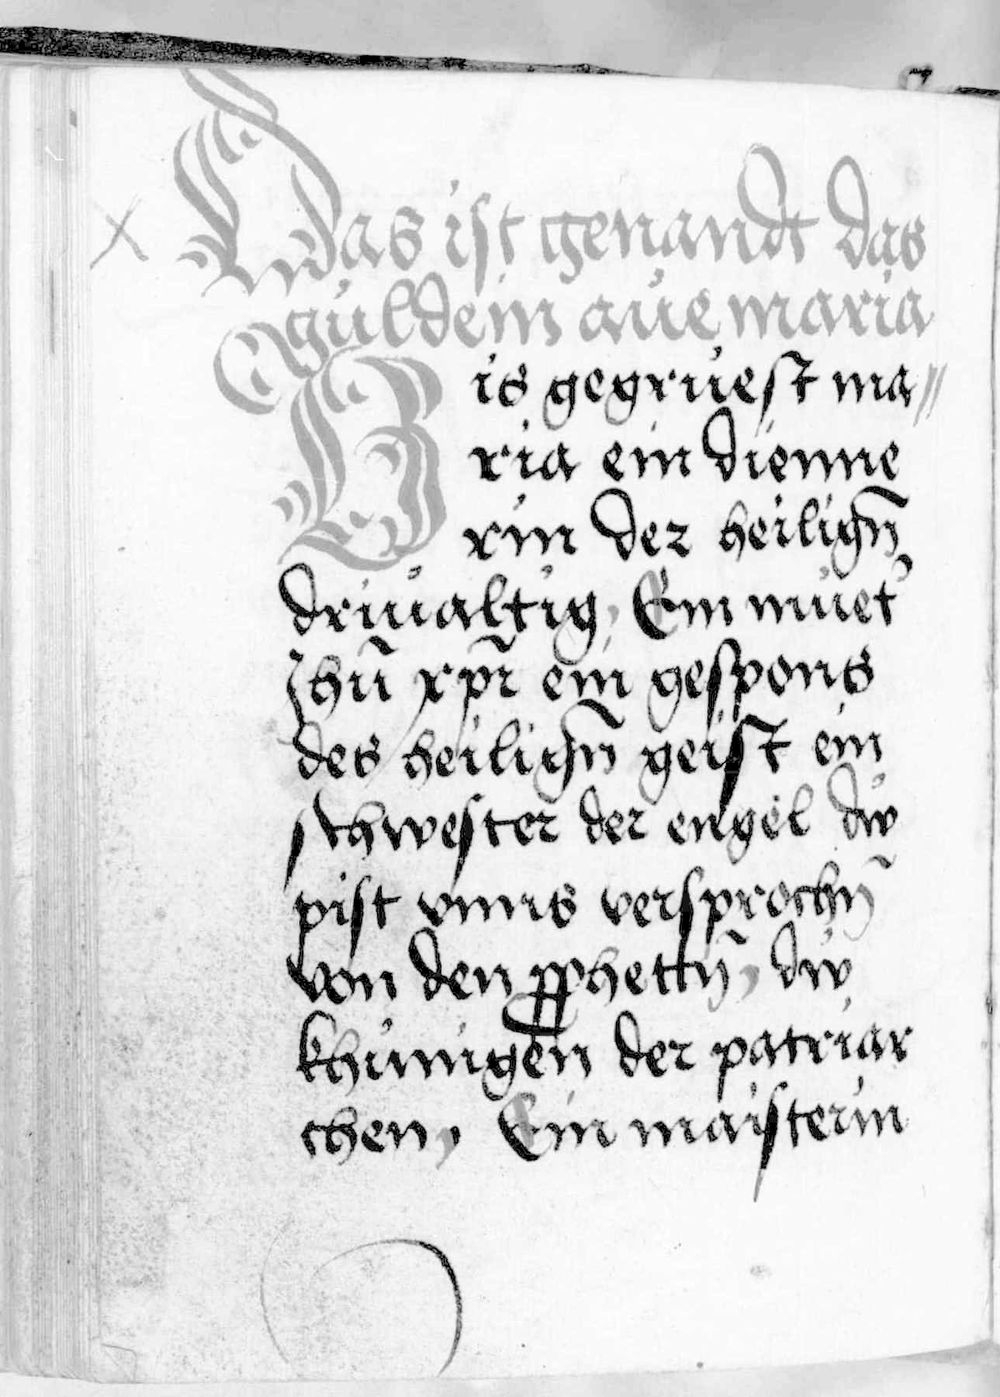 Das ist genandt das
guldein aue maria
Bis gegruest ma//
ria ein dienne
rin der heilign̄
driualtig, Ein muet̉
Jhū xp̄i ein gespons
des heilign̄ geist ein
schwester der engel dw
pist vnns versprochn̄
von den ꝓphettn̄, dw
khunigen der patriar
chen, Ein maisterin